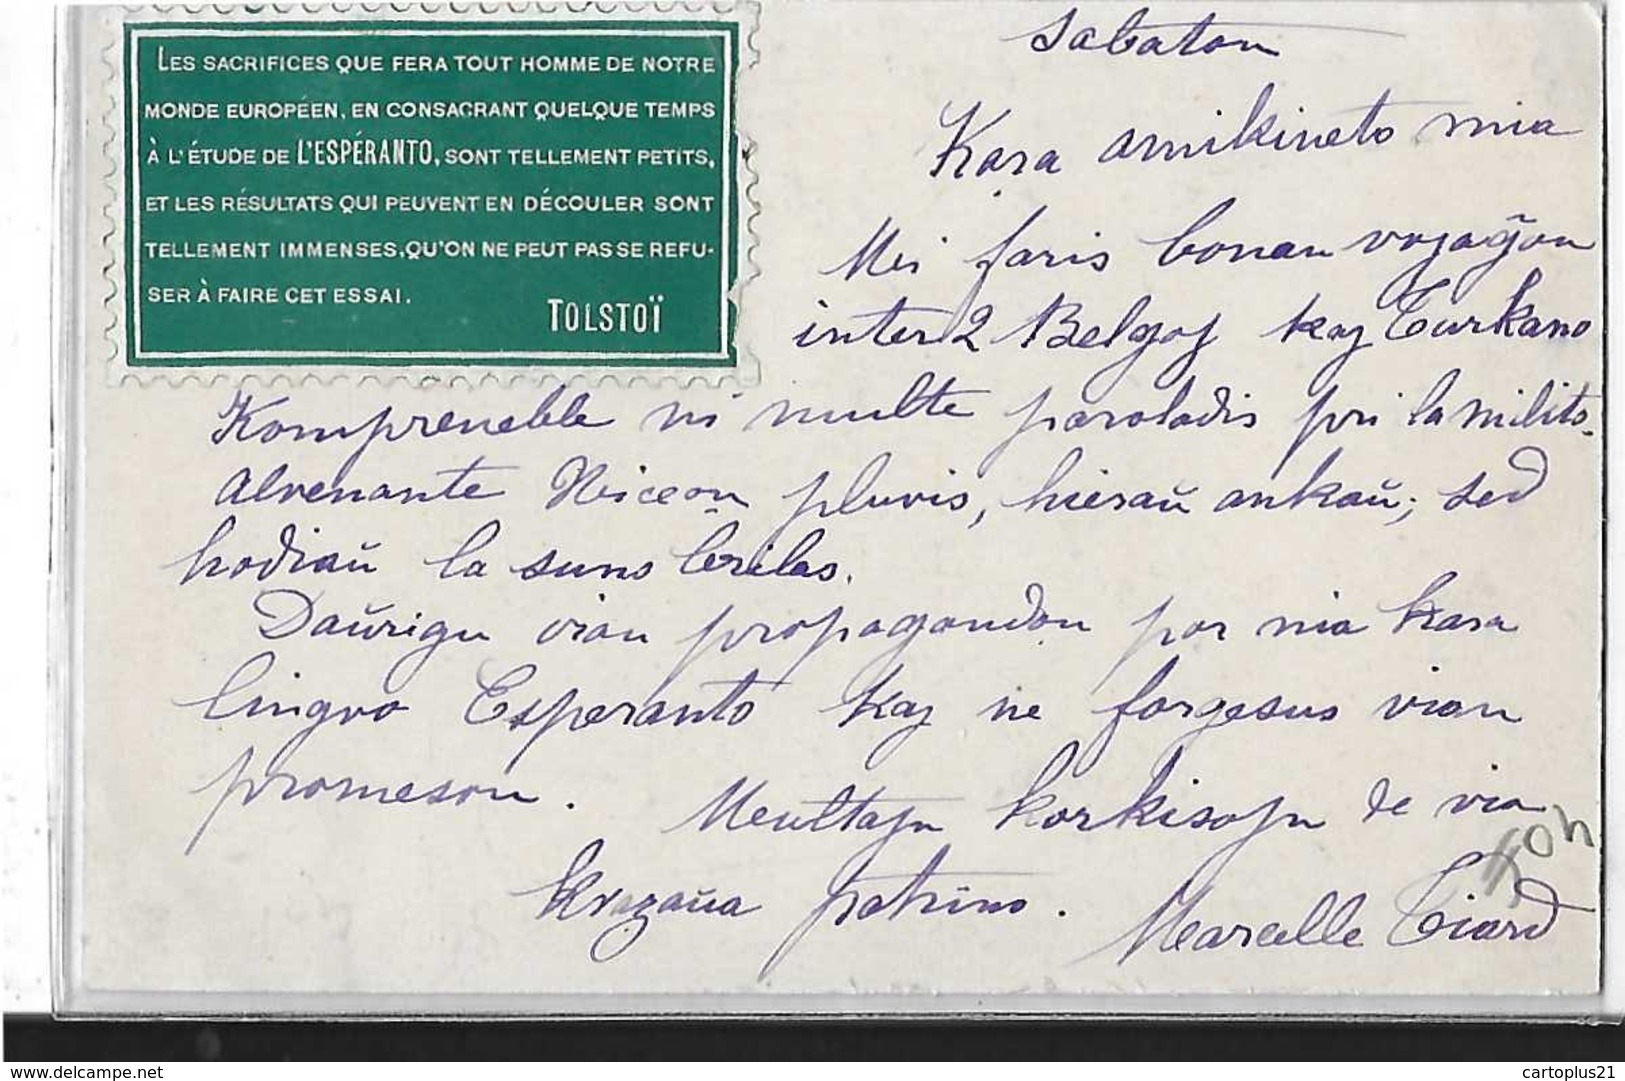 LES SACRIFICES QUE FERA TOUT HOMME DE NOTRE
MONDE EUROPÉEN, EN CONSACRANT QUELQUE TEMPS
À L'ÉTUDE DE L'ESPÉRANTO, SONT TELLEMENT PETITS,
ET LES RÉSULTATS QUI PEUVENT EN DÉCOULER SONT
TELLEMENT IMMENSES, QU'ON NE PEUT PAS SE REFU-
SER À FAIRE CET ESSAI.
TOLSTOÏ
Sabaton
Kara amikineto mia
Mi faris bonan vojaĝon
inter 2 Belgoj kaj Turkano
Kompreneble ni multe paroladis pri la milito.
Alvenante Niceon pluvis, hieraŭ ankaŭ; sed
hodiaŭ la suno brilas.
Daŭrigu vian propagandon por nia kara
lingvo Esperanto kaj ne forgesus vian
promeson.
Multajn korkisojn de via
patrino.
Marcelle Tiard
cartoplus21
www.delcampe.net